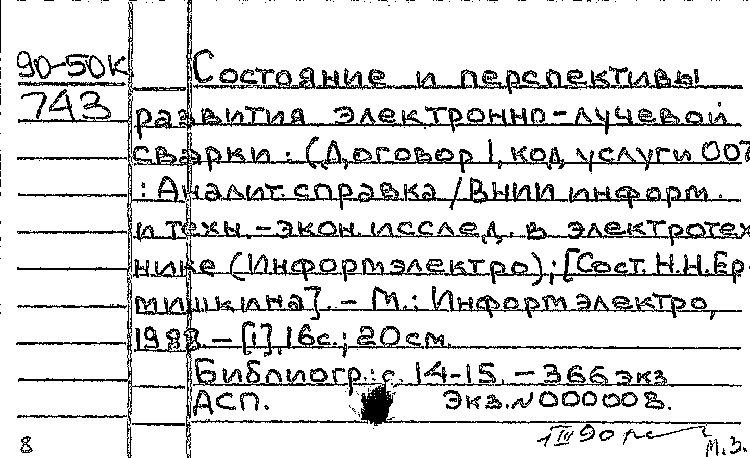 90-50К Состояние и перспективы
743 развития электронно-лучевой
сварки : (Договор 1, код услуги 007)
: Аналит. справка / ВНИИ информ.
и техн.-экон. исслед. в электротех
нике (Информэлектро) ; [Сост. Н.Н.Ер-
мишкина]. – М. : Информэлектро,
1988. – [1], 16 с. ; 20 см.
Библиогр.: с. 14-15. – 366 экз
ДСП. Экз. N000008.
1 III 90
8 М.З.